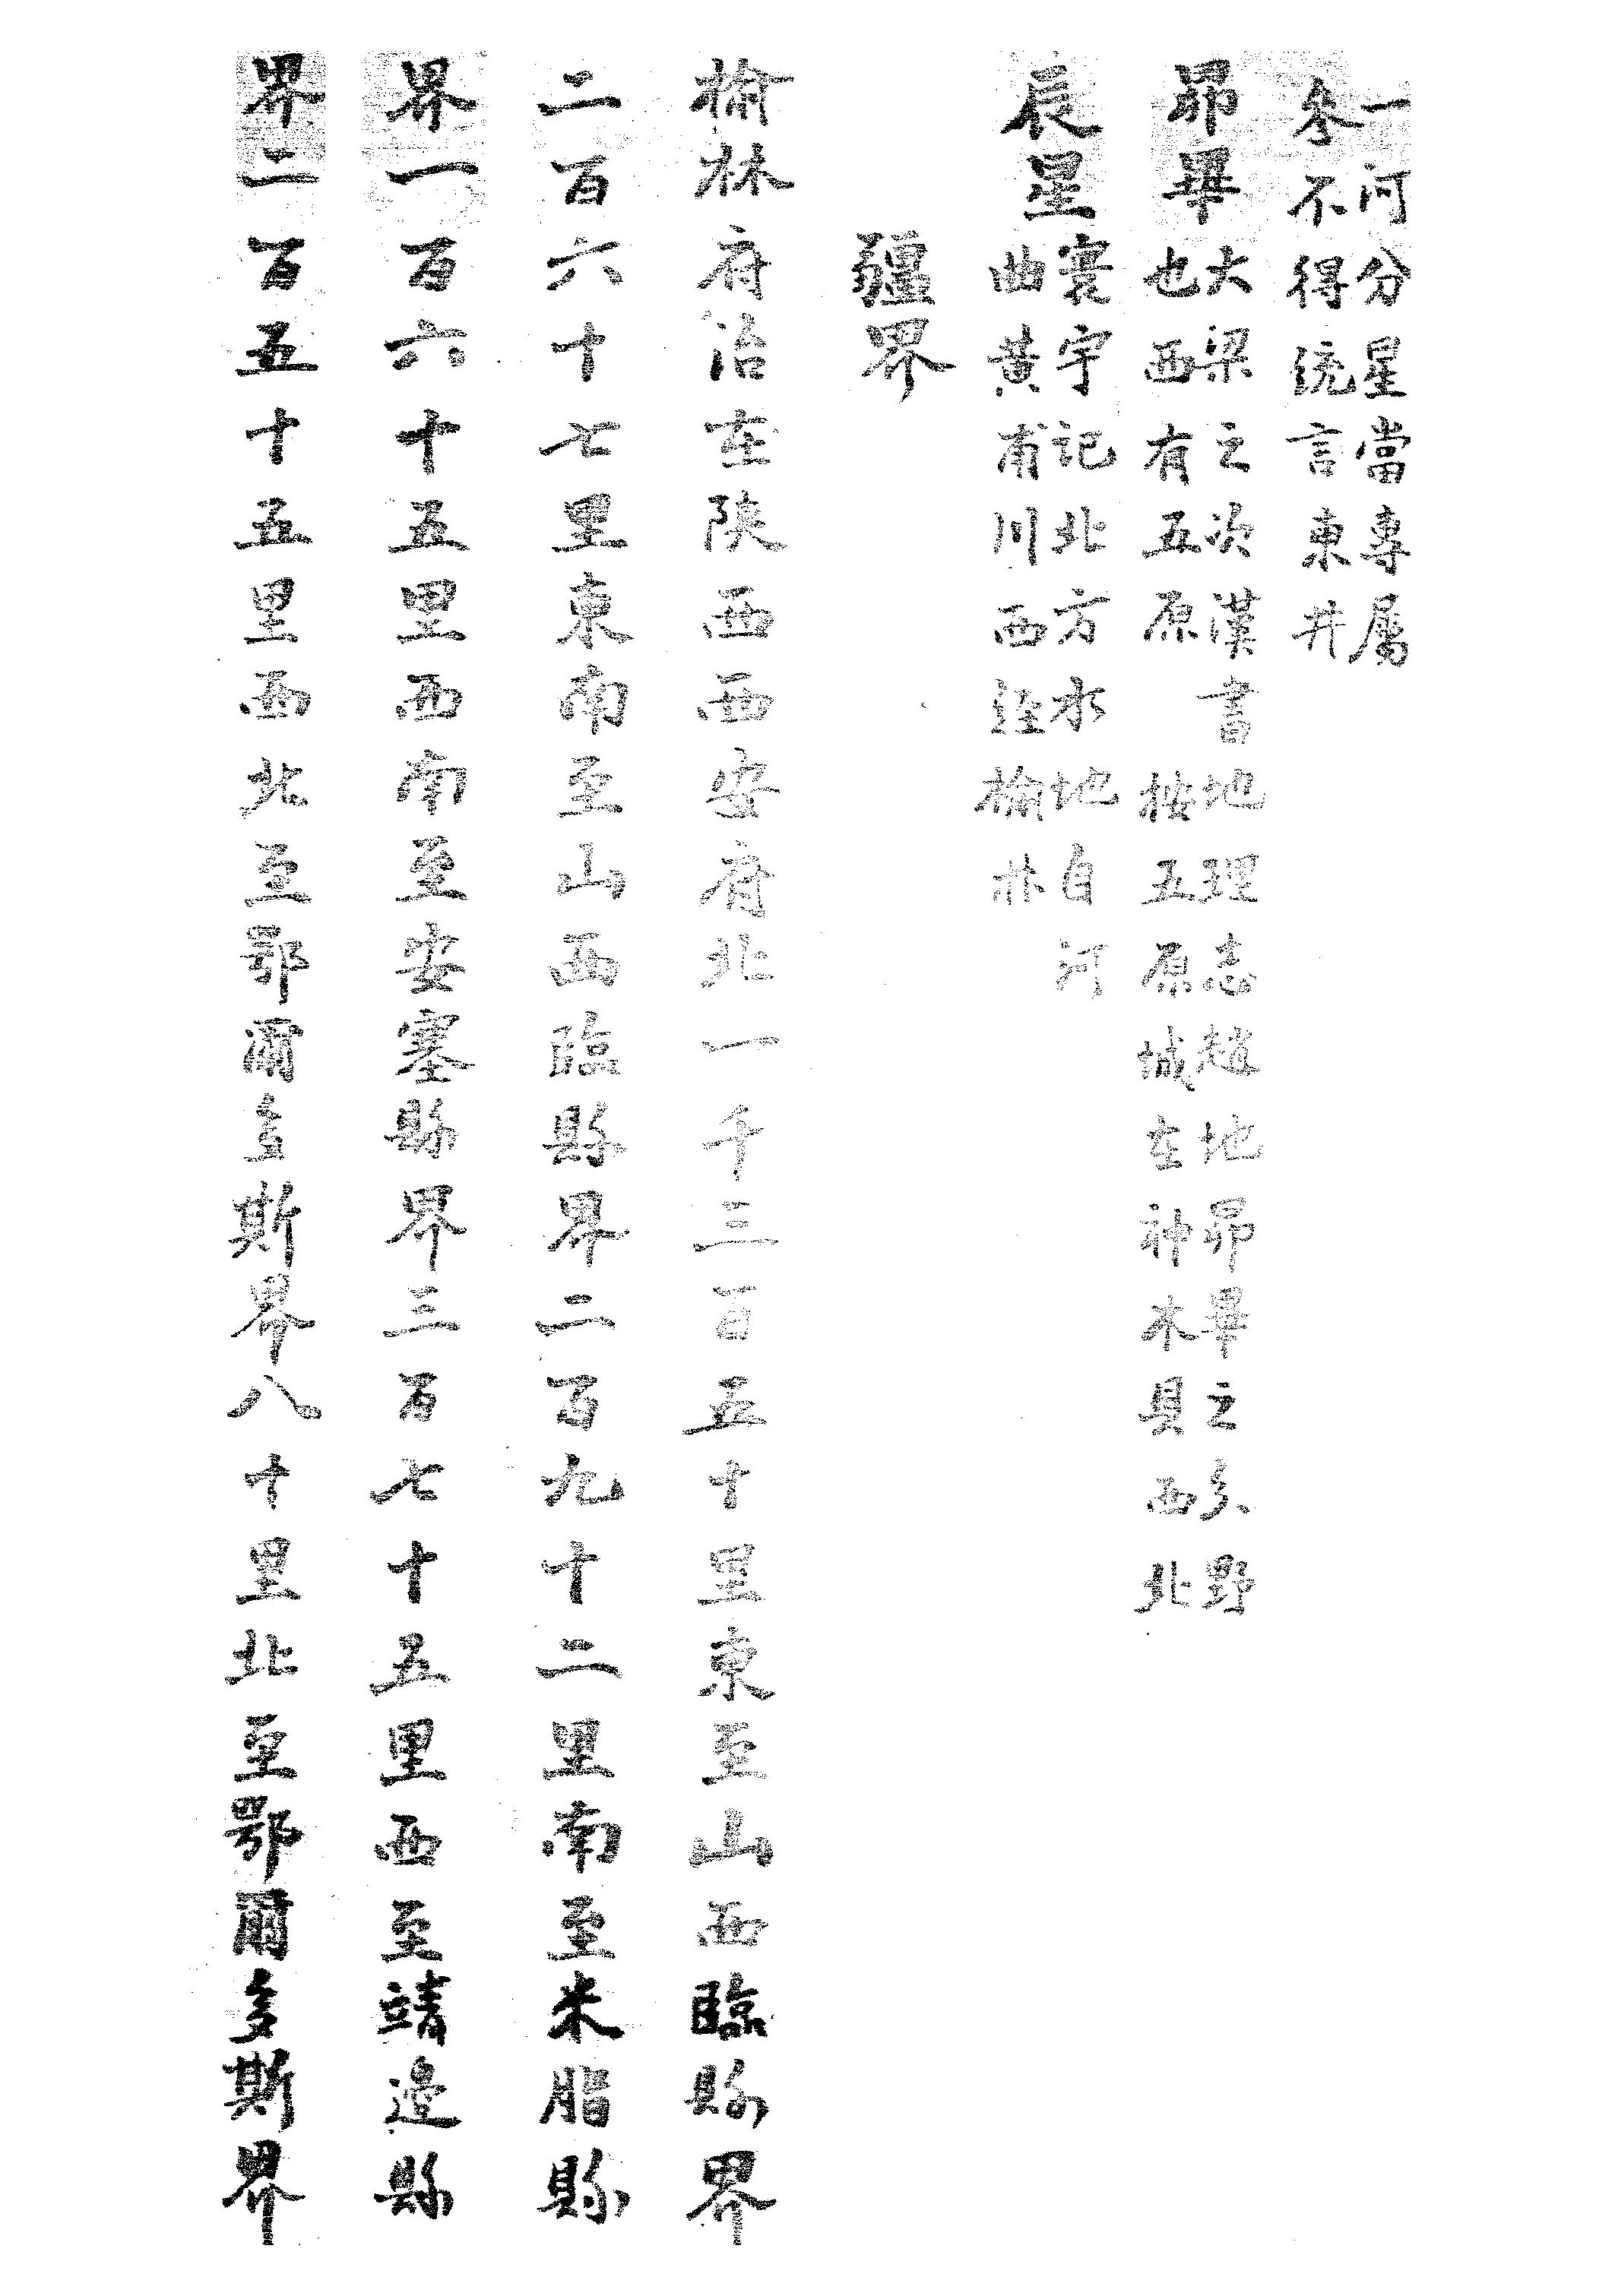 一河分星當專屬
參不得統言東井
昴畢大梁之次漢書地理志趙地昴畢之分野
也西有五原 按五原城在神木具西北
辰星寰宇記北方水地自河
曲黃甫川西經榆林
疆界
榆林府治在陝西西安府北一千三百五十里東至山西臨縣界
二百六十七里東南至山西臨縣界二百九十二里南至米脂縣
界一百六十五里西南至安塞縣界三百七十五里西至靖邊縣
界二百五十五里西北至鄂爾多斯界八十里北至鄂爾多斯界